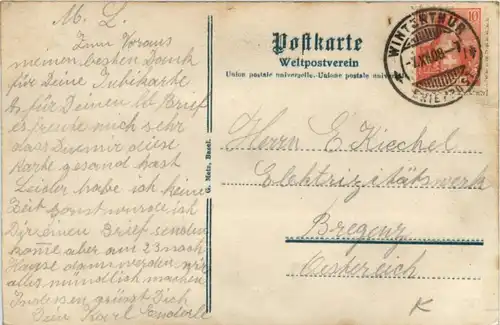 M. L.
Zum Voraus
meinen besten Dank
für Deine Jubikarte
u. für Deinen lb Brief
es freute mich sehr
dass Du mir diese
Karte gesand hast
Leider habe ich keine
Zeit sonst würde ich
Dir einen Brief senden
komme aber am 23 nach
Hause dann werden wir
alles mündlich machen
Indessen grüsst Dich
Dein Karl Enderle
G. Metz, Basel.
Postkarte
Weltpostverein
Union postale universelle. Unione postale universale
10
WINTERTHUR
Herrn E Kiechel
Elektrizitätswerk
Bregenz
Oesterreich
K